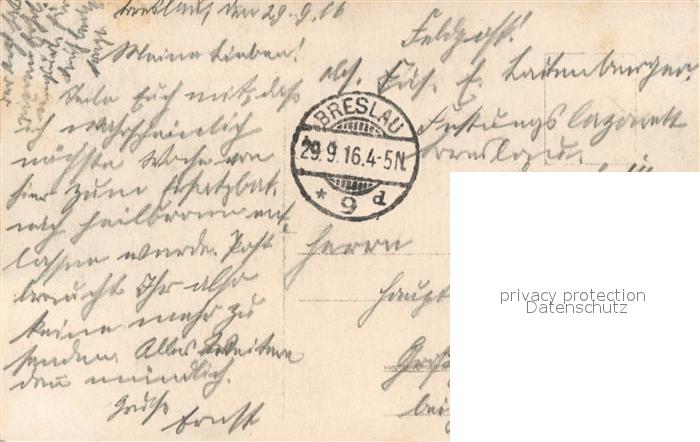 Breslau, den 29.9.16
Meine Lieben!
Teile Euch mit, daß
ich wahrscheinlich
nächste Woche von
hier zum Ersatzbat.
nach Heilbronn ent-
lassen werde. Post
braucht Ihr also
keine mehr zu
senden. Alles Weitere
dann mündlich.
Gruße
Ernst
Feldpost!
Abs. E. Lautenburger
Festungslazarett
Breslau
BRESLAU
29.9.16.4-5N.
* 9 d
Herrn
Haupt
bei
privacy protection
Datenschutz